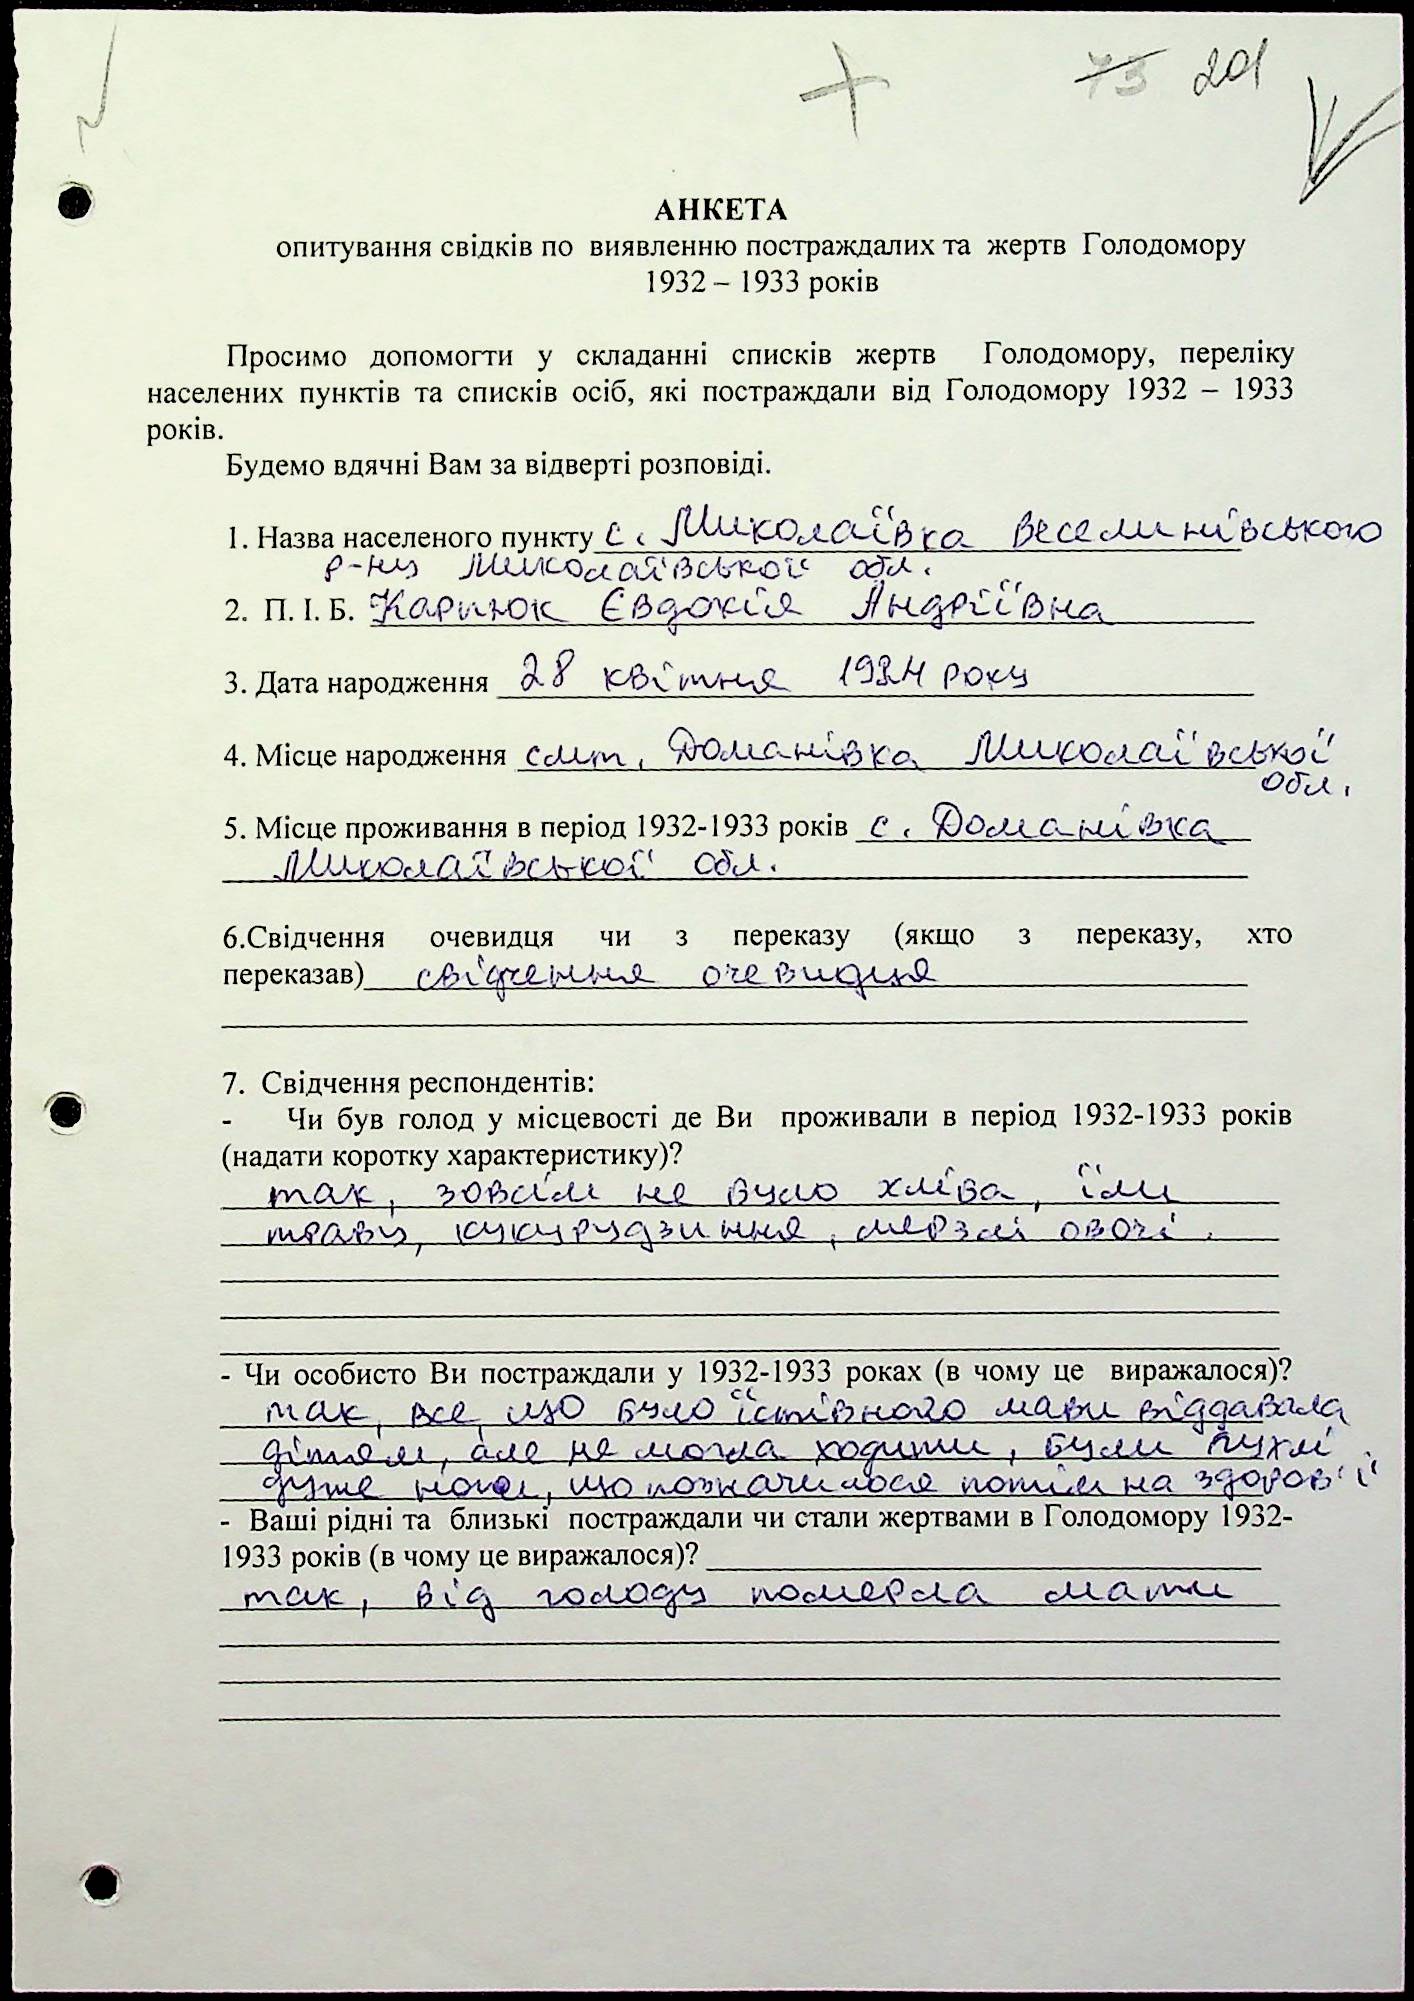 73 201
АНКЕТА
опитування свідків по виявленню постраждалих та жертв Голодомору
1932 – 1933 років
Просимо допомогти у складанні списків жертв Голодомору, переліку
населених пунктів та списків осіб, які постраждали від Голодомору 1932 – 1933
років.
Будемо вдячні Вам за відверті розповіді.
1. Назва населеного пункту с. Миколаївка Веселинівського
р-ну Миколаївської обл.
2. П. І. Б. Карпюк Євдокія Андріївна
3. Дата народження 28 квітня 1924 року
4. Місце народження смт. Доманівка Миколаївської
обл.
5. Місце проживання в період 1932-1933 років с. Доманівка
Миколаївської обл.
6.Свідчення очевидця чи з переказу (якщо з переказу, хто
переказав) свідчення очевидця
7. Свідчення респондентів:
- Чи був голод у місцевості де Ви проживали в період 1932-1933 років
(надати коротку характеристику)?
так, зовсім не було хліба, їли
траву, кукурудзиння, мерзлі овочі.
- Чи особисто Ви постраждали у 1932-1933 роках (в чому це виражалося)?
так, все, що було їстівного мати віддавала
дітям, але не могла ходити, були пухлі
дуже ноги, що позначилося потім на здоров'ї
- Ваші рідні та близькі постраждали чи стали жертвами в Голодомору 1932-
1933 років (в чому це виражалося)?
так, від голоду померла мати